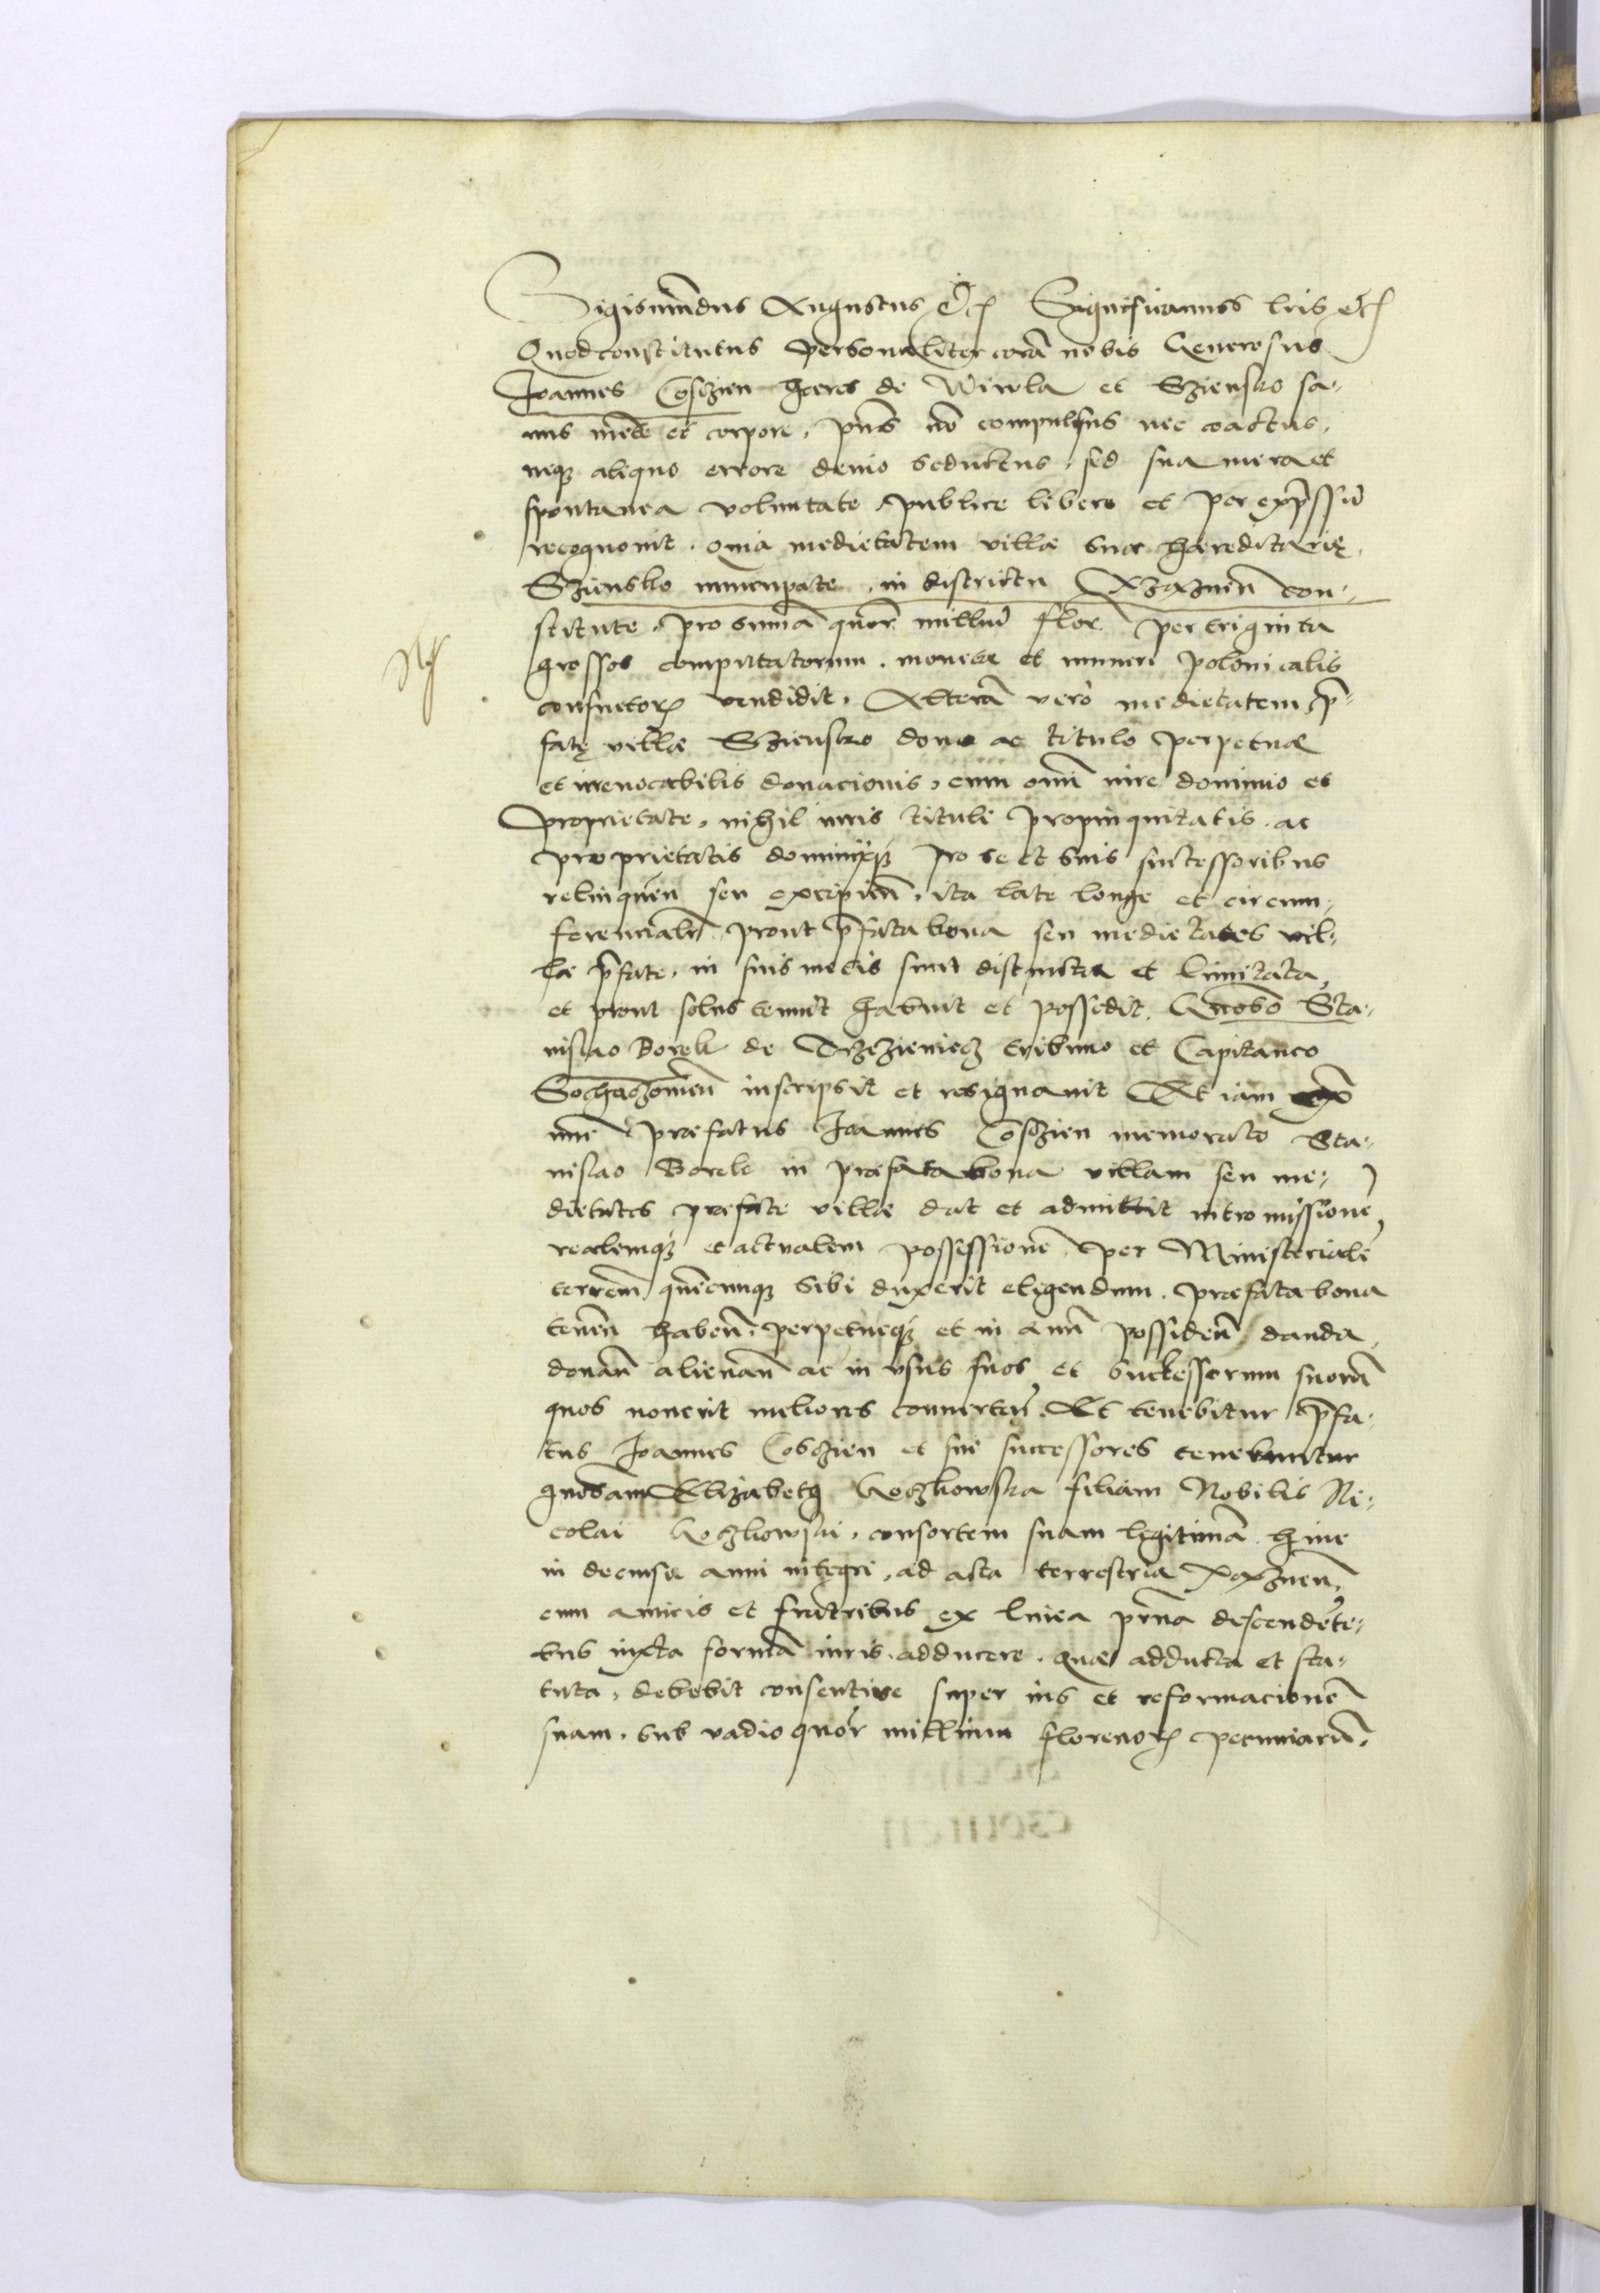 Sigismundus Augustus etc Significamus lris etc
Quod constitutus personaliter corā nobis Generosus
Joannes Coszien heres de Wirla et Sziensko sa-
nus mēte et corpore, pn̄s nō compulsus nec coactus,
neq; aliquo errore devio seductus, sed sua mera et
spontanea voluntate, publice libere et per exp̄ssū
recognovit. quia medietatem villæ suæ hæreditarię,
Sziensko nuncupate, in districtu con-
stitute, pro sum̄a quor̄ milliū flor̄ per triginta
grossos computatorum, monetæ et numeri polonicalis
consuetor̄ vendidit, Alterā vero medietatem p̄-
fatę villæ Sziensko dono ac titulo perpetuæ
et irrevocabilis donacionis, cum om̄i iure dominio et
proprietate, nihil iuris tituli propinquitatis ac
proprietatis dominijq; pro se et suis successoribus
relinquen̄ seu excipien̄, ita late longe et circum-
ferencialr̄ prout p̄fata bona seu medietates vil-
læ p̄fate, in suis metis sunt distincta et limitata,
et prout solus tenuit habuit et possedit, Gn̄oso Sta-
nislao Borek de Trzezieniecz tribuno et Capitaneo
Sochaczovien̄ inscripsit et resignavit Et iam ex
nūc præfatus Joannes Coszien memorato Sta-
nislao Borek in præfata bona villam seu me-
dietates præfate villæ dat et admittit intromissionē,
realemq; et actualem possessionē, per Ministerialē
terrem̄ quēcunq; sibi duxerit eligendum. præfata bona
tenen̄ haben̄, perpetueq; et in ævū possiden̄ danda,
donan̄ alienan̄ ac in usus suos et successorum suorū
quos noverit meliores converten̄. Et tenebitur p̄fa-
tus Joannes Coszien et sui successores tenebuntur
quōsam Elizabeth Koczkowska filiam Nobilis Ni-
colai Koczkowski, consortem suam legitimā hinc
in decursu anni integri, ad acta terrestria
cum amicis et fratribus ex linea pr̄na descendēte-
bus iuxta formā iuris adducere. quæ adducta et sta-
tuta, debebit consentire super ius et reformacionē
suam, sub vadio quor̄ millium florenor̄ pecuniarū,